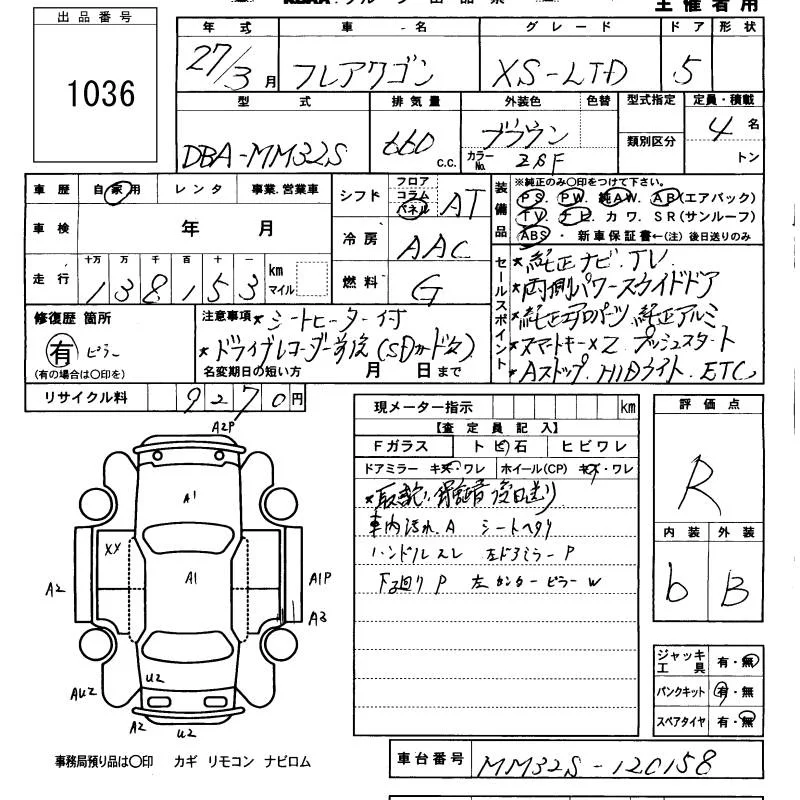 出品番号
1036
主催者用
年 式 車 名 グレード ドア 形状
27/3月 フレアワゴン XS-LTD 5
型 式 排気量 外装色 色替 型式指定 定員・積載
DBA-MM32S 660 c.c. ブラウン 類別区分 4名
カラーNo. ZSF トン
車歴 自家用 レンタ 事業.営業車
車検 年 月
走行 十万 万 千 百 十 一 km マイル
138153
シフト フロア コラム パネル AT
冷房 AAC
燃料 G
装備品 ※純正のみ○印をつけて下さい。
PS. PW. 純AW. AB(エアバック)
TV. ナビ. カワ. SR(サンルーフ)
ABS・ 新車保証書←(注) 後日送りのみ
セールスポイント
*純正ナビ.TV
*両側パワースライドドア
*純正エアロパーツ.純正アルミ
*スマートキー×2 プッシュスタート
*Aストップ.HIDライト.ETC
修復歴 箇所
有 ピラー
(有の場合は○印を)
注意事項 *シートヒーター付
*ドライブレコーダー前後(SDカード欠)
名変期日の短い方 月 日まで
リサイクル料 9270円
A2P
A1
XX
A1
A2
A1P
A3
U2
AU2
A2
U2
現メーター指示 km
【査定員記入】
Fガラス トビ石 ヒビワレ
ドアミラー キズ・ワレ ホイール(CP) キズ・ワレ
*取説.保証書 後日送り
車内汚れ.A シートヘタリ
ハンドルスレ 左ドアミラーP
下廻りP 左センターピラーW
評価点
R
内装 外装
b B
ジャッキ工具 有・無
パンクキット 有・無
スペアタイヤ 有・無
事務局預り品は○印 カギ リモコン ナビロム
車台番号 MM32S-120158